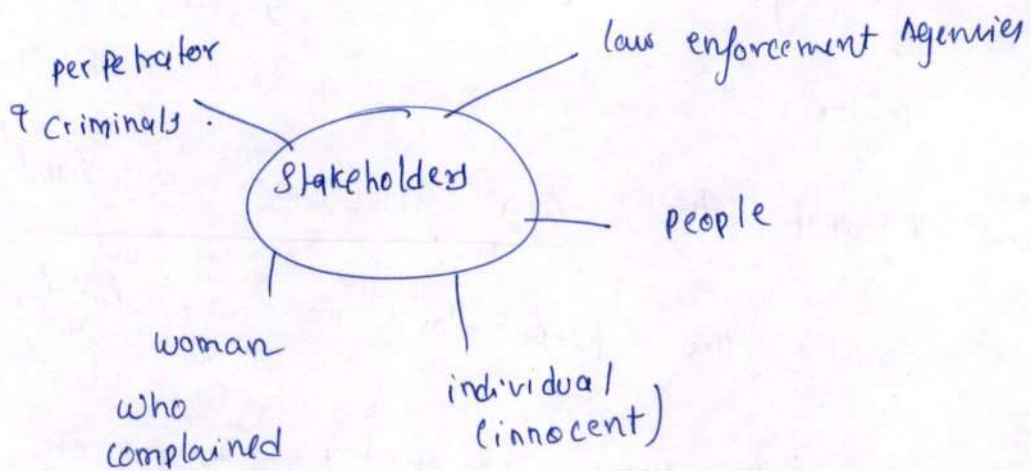 perpetrator
& Criminals.
law enforcement Agencies
Stakeholders
people
woman
who
complained
individual
(innocent)